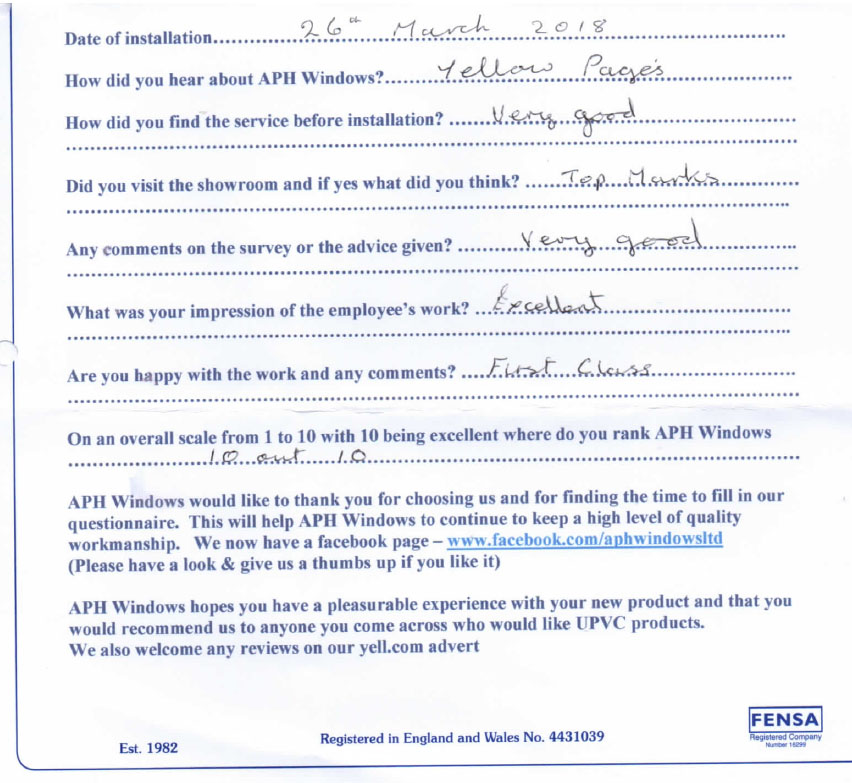 Date of installation.....26th March 2018.....
How did you hear about APH Windows?.....Yellow Pages.....
How did you find the service before installation? .....Very good.....
Did you visit the showroom and if yes what did you think? .....Top Marks.....
Any comments on the survey or the advice given? .....Very good.....
What was your impression of the employee's work? .....Excellent.....
Are you happy with the work and any comments? .....First Class.....
On an overall scale from 1 to 10 with 10 being excellent where do you rank APH Windows
.....10 out 10.....
APH Windows would like to thank you for choosing us and for finding the time to fill in our
questionnaire. This will help APH Windows to continue to keep a high level of quality
workmanship. We now have a facebook page – www.facebook.com/aphwindowsltd
(Please have a look & give us a thumbs up if you like it)
APH Windows hopes you have a pleasurable experience with your new product and that you
would recommend us to anyone you come across who would like UPVC products.
We also welcome any reviews on our yell.com advert
FENSA
Registered Company
Number 16299
Est. 1982
Registered in England and Wales No. 4431039